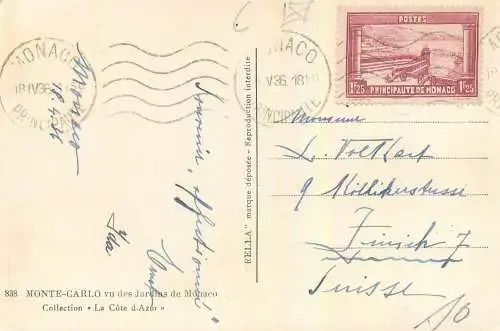 MONACO
18 IV 36
PRINCIPAUTE
Monaco
18.4.36
Souvenir affectueux
838 MONTE-CARLO vu des Jardins de Monaco
Collection « La Côte d'Azur »
"RELLA" marque déposée - Reproduction interdite
MONACO
IV 36. 18
PRINCIPAUTE
POSTES
PRINCIPAUTE DE MONACO
1f25 1f25
Monsieur
L. Volkart
9 Köllikerstrasse
Zürich 7
Suisse